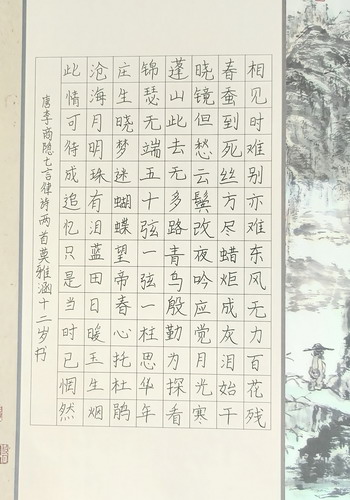 相见时难别亦难东风无力百花残
春蚕到死丝方尽蜡炬成灰泪始干
晓镜但愁云鬓改夜吟应觉月光寒
蓬山此去无多路青鸟殷勤为探看
锦瑟无端五十弦一弦一柱思华年
庄生晓梦迷蝴蝶望帝春心托杜鹃
沧海月明珠有泪蓝田日暖玉生烟
此情可待成追忆只是当时已惘然
唐李商隐七言律诗两首莫雅涵十二岁书